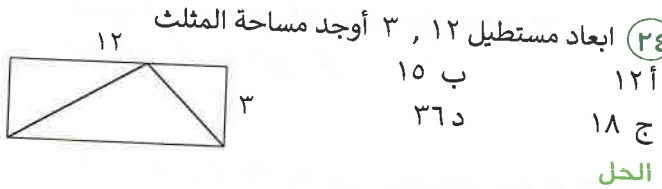 ٢٤ ابعاد مستطيل ١٢ , ٣ أوجد مساحة المثلث
١٢
أ ١٢ ب ١٥
٣
ج ١٨ د ٣٦
الحل